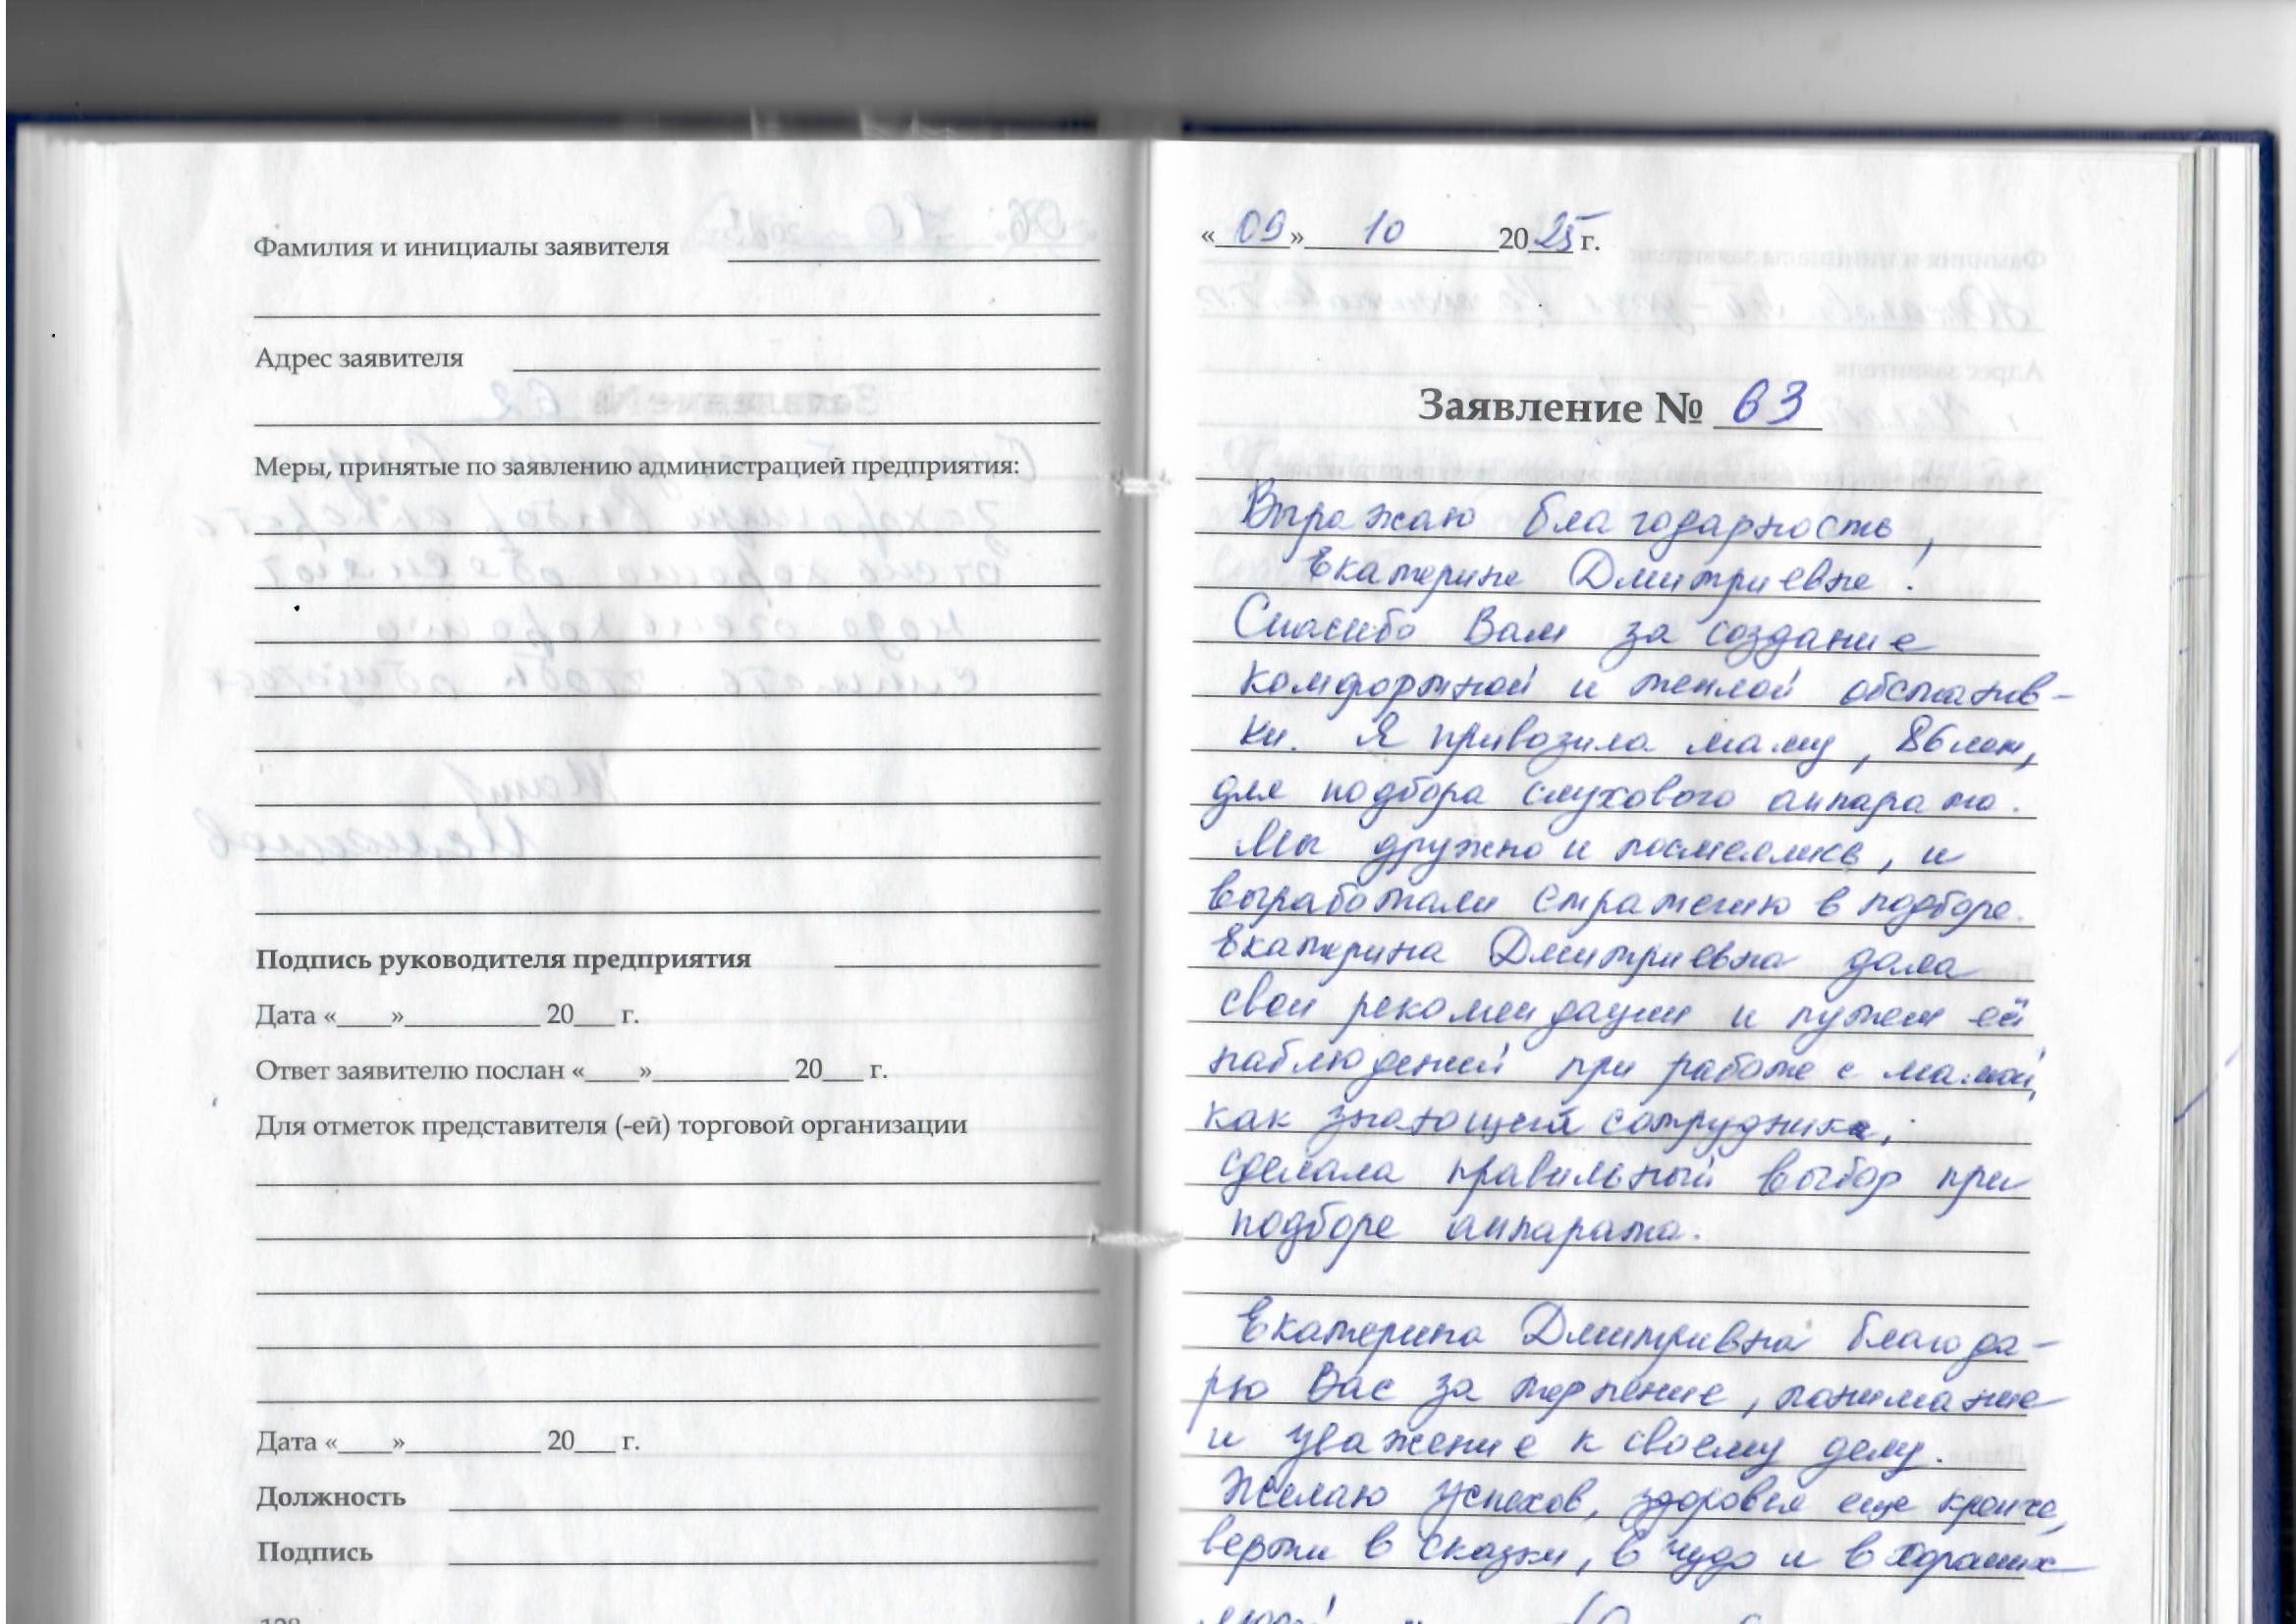 Фамилия и инициалы заявителя
Адрес заявителя
Меры, принятые по заявлению администрацией предприятия:
Подпись руководителя предприятия
Дата «____»__________ 20___ г.
Ответ заявителю послан «____»__________ 20___ г.
Для отметок представителя (-ей) торговой организации
Дата «____»__________ 20___ г.
Должность
Подпись
«09» 10 2025 г.
Заявление № 63
Выражаю благодарность,
Екатерине Дмитриевне!
Спасибо Вам за создание
комфортной и теплой обстанов-
ки. Я привозила маму, 86 лет,
для подбора слухового аппарата.
Мы дружно и посмеялись, и
выработали стратегию в подборе.
Екатерина Дмитриевна дала
свои рекомендации и путем её
наблюдений при работе с мамой,
как знающего сотрудника,
сделала правильный выбор при
подборе аппарата.
Екатерина Дмитривна благода-
рю Вас за терпение, понимание
и уважение к своему делу.
Желаю успехов, здоровья еще крепче,
верти в сказки, в чудо и в хороших